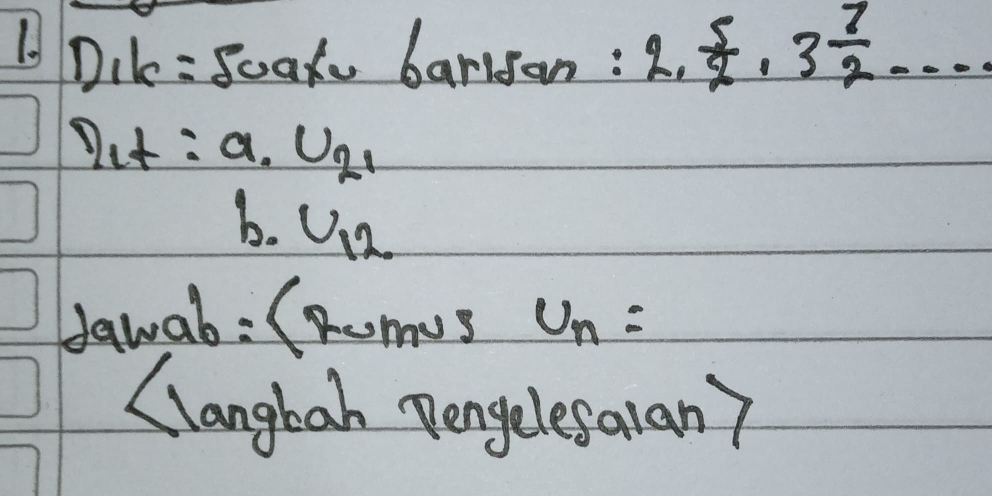 1. Dik = Suatu barisan : 2, 5/2, 3 7/2 ....
Dit : a. U21
b. U12
Jawab = (Rumus Un =
<langkah Penyelesaian>